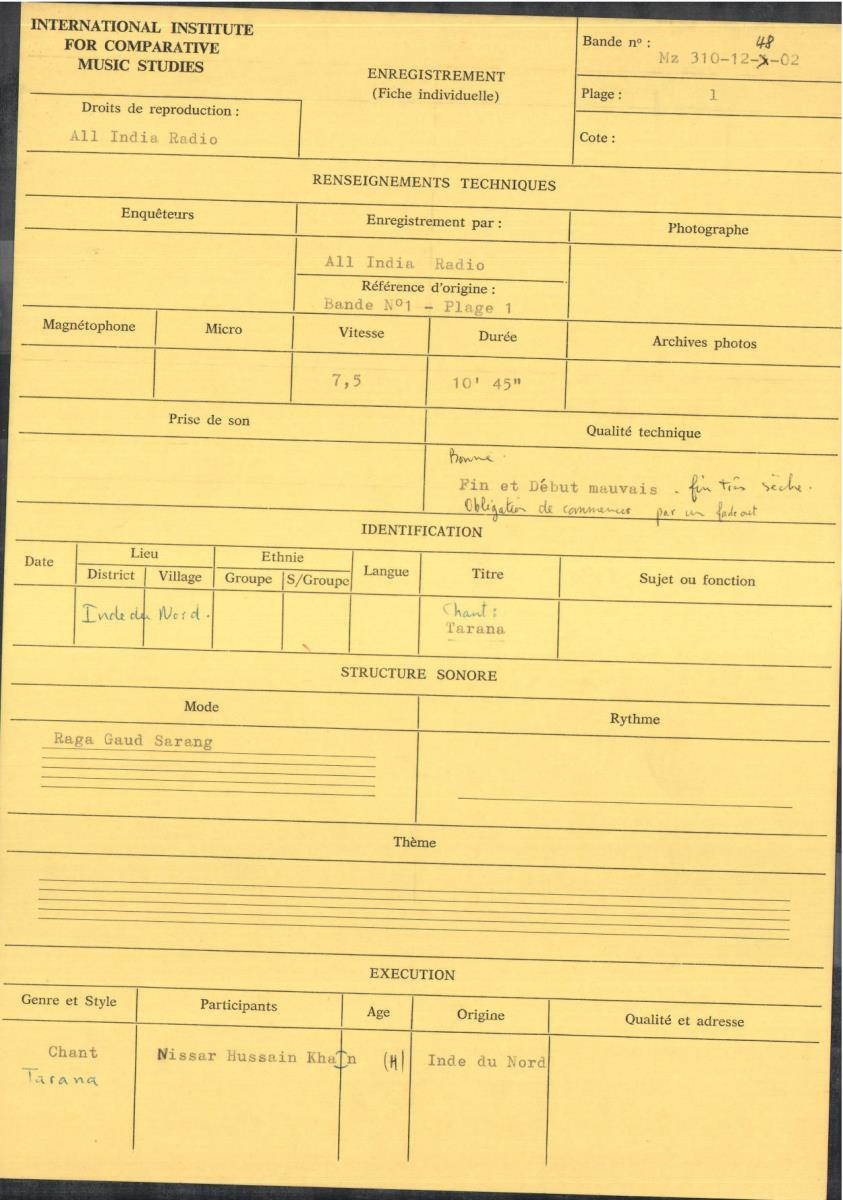 INTERNATIONAL INSTITUTE
FOR COMPARATIVE
MUSIC STUDIES
Droits de reproduction :
All India Radio
ENREGISTREMENT
(Fiche individuelle)
Bande nº :
48
Mz 310-12-x-02
Plage : 1
Cote :
RENSEIGNEMENTS TECHNIQUES
Enquêteurs
Enregistrement par :
Photographe
All India Radio
Référence d'origine :
Bande Nº1 - Plage 1
Magnétophone
Micro
Vitesse
Durée
Archives photos
7,5
10' 45"
Prise de son
Qualité technique
Bonne.
Fin et Début mauvais . fin très sèche.
Obligation de commencer par un fade out
IDENTIFICATION
Date
Lieu
District
Village
Ethnie
Groupe
S/Groupe
Langue
Titre
Sujet ou fonction
Inde du Nord.
Chant :
Tarana
STRUCTURE SONORE
Mode
Rythme
Raga Gaud Sarang
Thème
EXECUTION
Genre et Style
Participants
Age
Origine
Qualité et adresse
Chant
Tarana
Nissar Hussain Khan
(H)
Inde du Nord